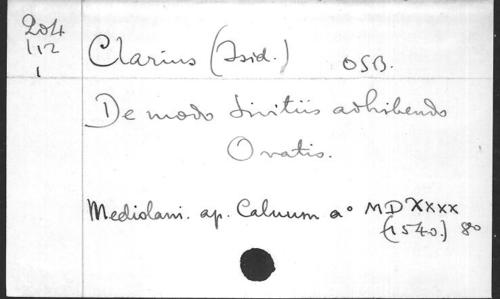 204
112
1
Clarius (Isid.) OSB.
De modo divitiis adhibendo
Oratio.
Mediolani. ap. Caluum a° MDXXXX
(1540.) 8o